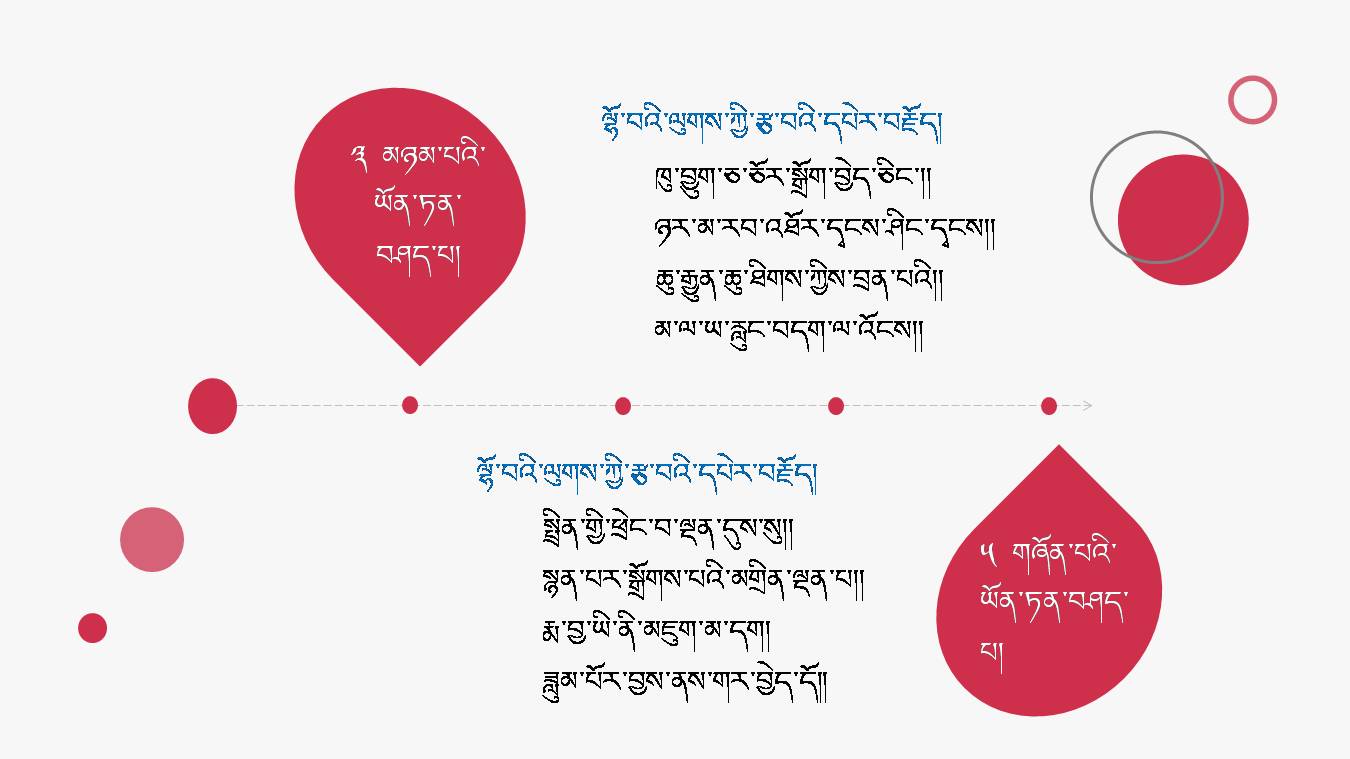 ༣ མཉམ་པའི་
ཡོན་ཏན་
བཤད་པ།
ལྷོ་བའི་ལུགས་ཀྱི་རྩ་བའི་དཔེར་བརྗོད།
ཁུ་བྱུག་ཅ་ཅོར་སྒྲོག་བྱེད་ཅིང་།།
ཉར་མ་རབ་འཐོར་དྭངས་ཤིང་དྭངས།།
ཆུ་རྒྱུན་ཆུ་ཐིགས་ཀྱིས་བྲན་པའི།།
མ་ལ་ཡ་རླུང་བདག་ལ་འོངས།།
ལྷོ་བའི་ལུགས་ཀྱི་རྩ་བའི་དཔེར་བརྗོད།
སྤྲིན་གྱི་ཕྲེང་བ་ལྡན་དུས་སུ།།
སྙན་པར་སྒྲོགས་པའི་མགྲིན་ལྡན་པ།།
རྨ་བྱ་ཡི་ནི་མཇུག་མ་དག།
ཟླུམ་པོར་བྱས་ནས་གར་བྱེད་དོ།།
༥ གཞོན་པའི་
ཡོན་ཏན་བཤད་
པ།